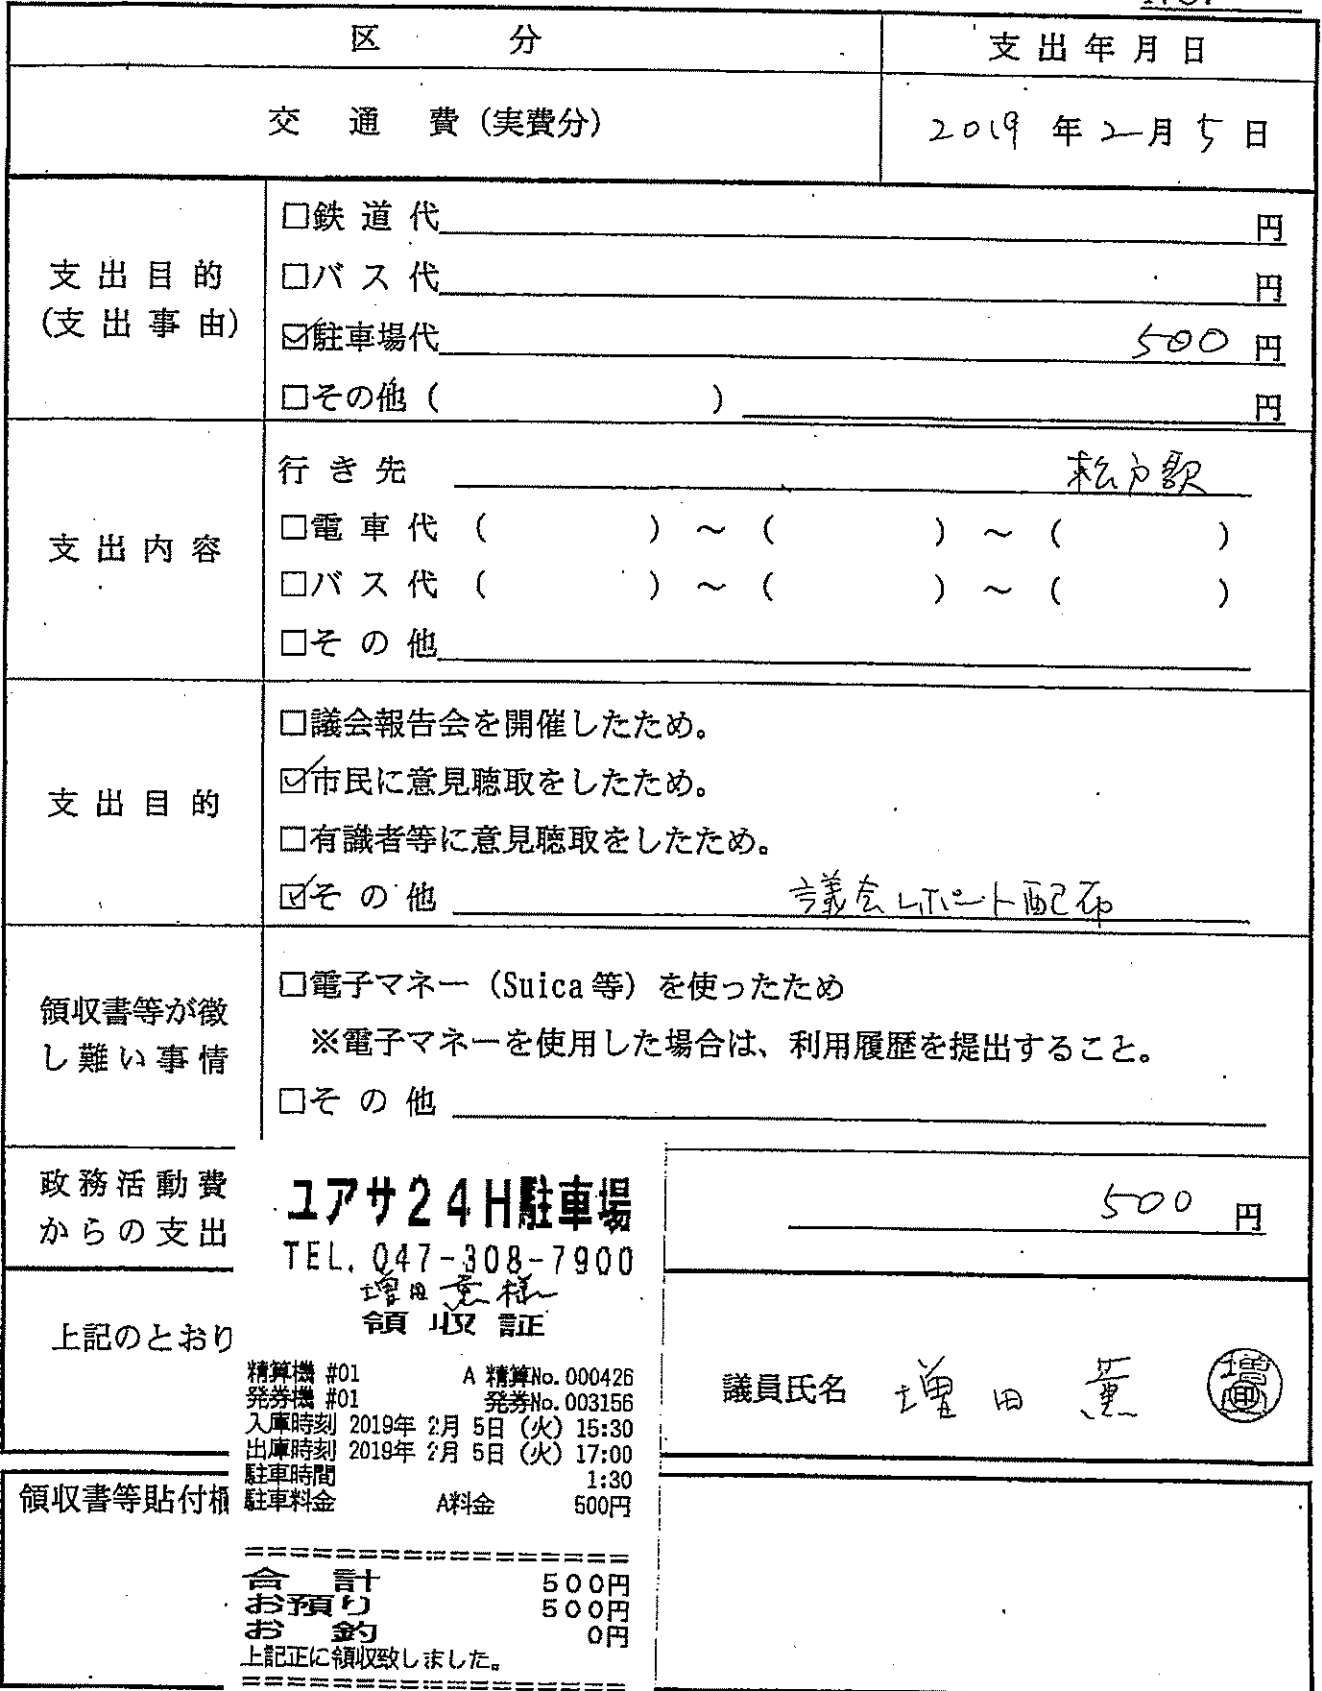 No.
区 分 支出年月日
交 通 費（実費分） 2019 年 2月 5日
支出目的
（支出事由）
□鉄道代 円
□バス代 円
☑駐車場代 500 円
□その他（ ） 円
支出内容
行き先 松戸駅
□電車代（ ）～（ ）～（ ）
□バス代（ ）～（ ）～（ ）
□その他
支出目的
□議会報告会を開催したため。
☑市民に意見聴取をしたため。
□有識者等に意見聴取をしたため。
☑その他 議会レポート配布
領収書等が徴
し難い事情
□電子マネー（Suica等）を使ったため
※電子マネーを使用した場合は、利用履歴を提出すること。
□その他
政務活動費
からの支出
500 円
上記のとおり
議員氏名 増田 薫
領収書等貼付欄
ユアサ24H駐車場
TEL. 047-308-7900
増田薫様
領収証
精算機 #01 A 精算No.000426
発券機 #01 発券No.003156
入庫時刻 2019年 2月 5日（火）15:30
出庫時刻 2019年 2月 5日（火）17:00
駐車時間 1:30
駐車料金 A料金 500円
==================
合 計 500円
お預り 500円
お 釣 0円
上記正に領収致しました。
==================